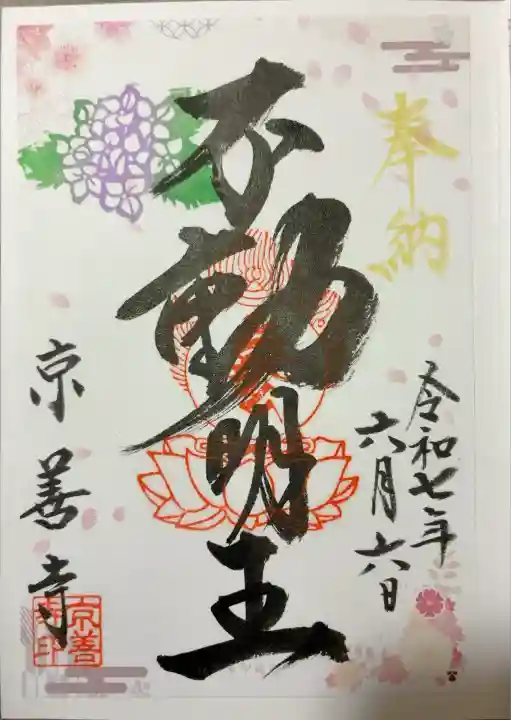 奉納
不動明王
令和七年
六月六日
京善寺
京善
寺印